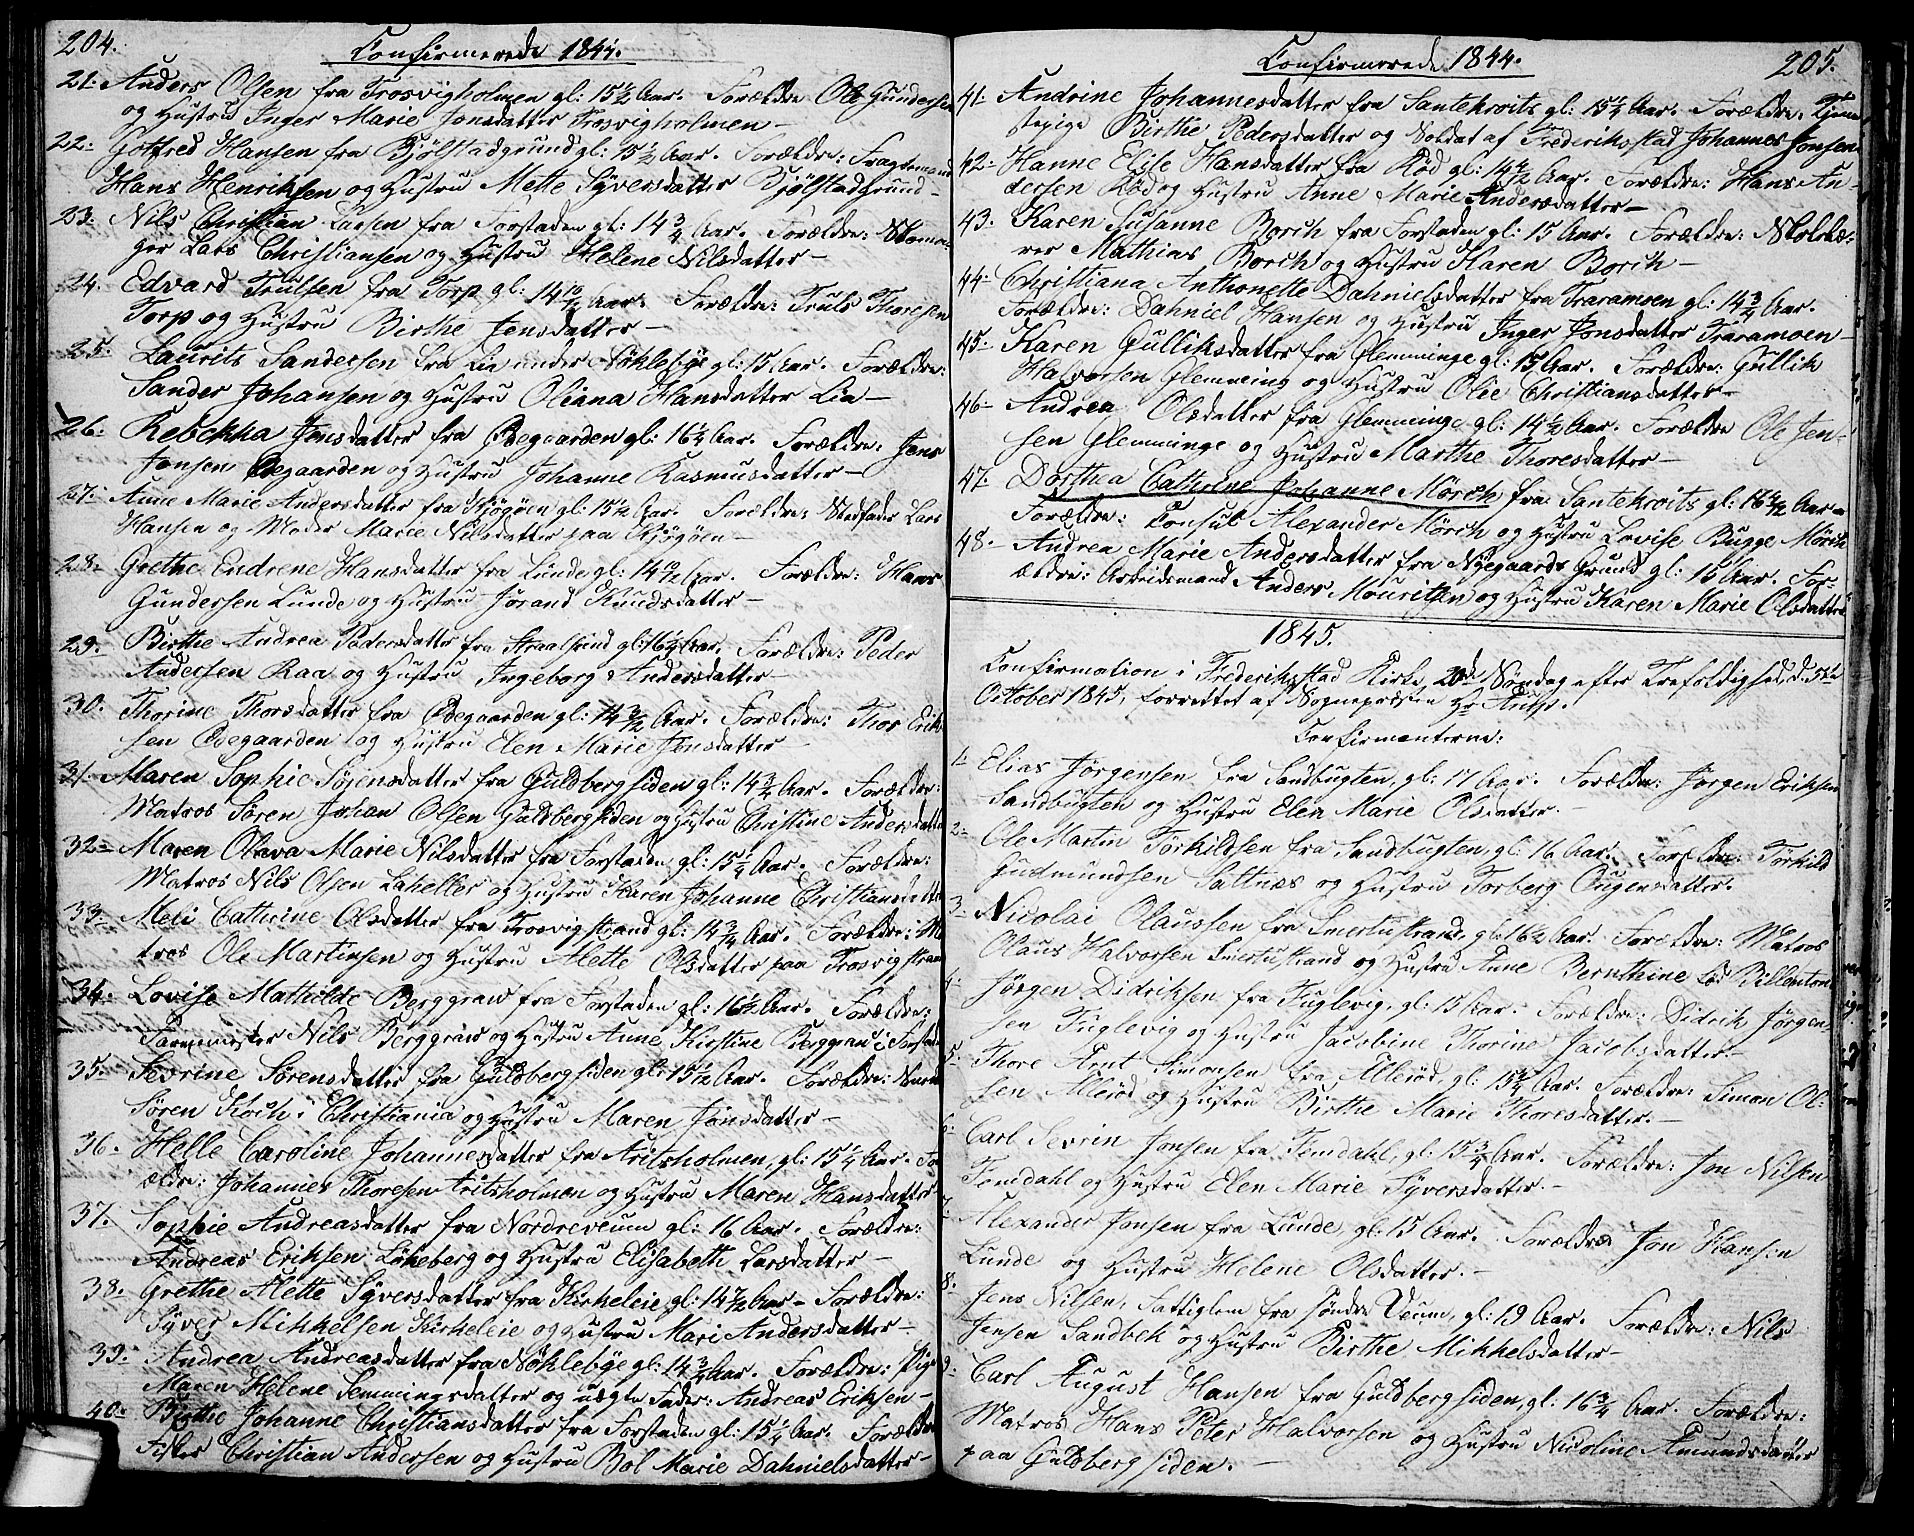 204.
Confirmerede 1844.
21. Anders Olsen fra Trosvigholmen gl: 15½ Aar. Forældre Ole Gundersen
og Hustru Inger Marie Jonsdatter Trosvigholmen —
22: Gotfred Hansen fra Bjølstadgrund gl: 15½ Aar. Forældre:
Hans Henriksen og Hustru Mette Syversdatter Bjølstadgrund —
23: Nils Christian Larsen fra Forstaden gl: 14¾ Aar. Forældre:
ger Lars Christiansen og Hustru Helene Nilsdatter —
24. Edvard Trulsen fra Torp gl: 14 10/12 Aar. Forældre: Truls Thoresen
Torp og Hustru Birthe Jensdatter —
25. Laurits Sandersen fra Lie under Nøkleby gl: 15 Aar. Forældre:
Sander Johansen og Hustru Oliana Hansdatter Lie —
26: Rebekka Jensdatter fra Ødegaarden gl: 16¼ Aar. Forældre: Jens
Jonsen Ødegaarden og Hustru Johanne Rasmusdatter —
27: Anne Marie Andersdatter fra Kjøgøen gl: 15½ Aar. Forældre: Stedfader Lars
Hansen og Moder Marie Nilsdatter paa Kjøgøen —
28. Grethe Endrene Hansdatter fra Lunde gl: 14 10/12 Aar. Forældre: Hans
Gundersen Lunde og Hustru Jørand Knudsdatter —
29. Birthe Andrea Pedersdatter fra gl: 16¼ Aar. Forældre: Peder
Andersen Raa og Hustru Ingeborg Andersdatter —
30. Thorine Thorsdatter fra Ødegaarden gl: 14 Aar. Forældre: Thor Erik-
sen Ødegaarden og Hustru Elen Marie Jensdatter —
31. Maren Sophie Sørensdatter fra Guldbergsiden gl: 14¾ Aar. Forældre:
Matros Søren Johan Olsen Guldbergsiden og Hustru Christine Andersdatter
32 Maren Olava Marie Nilsdatter fra Forstaden gl: 15¼ Aar. Forældre:
Matros Nils Olsen Laheller og Hustru Karen Johanne Christiansdatter
33. Meli Cathrine Olsdatter fra Trosvigstrand gl: 14¾ Aar. Forældre: Ma
tros Ole Martinsen og Hustru Mette Olsdatter paa Trosvigstrand
34. Lovise Mathilde Berggraw fra Forstaden gl: 16½ Aar. Forældre:
Nils Berggraw og Hustru Anne Kirstine Berggraw i Forstaden
35. Sevrine Sørensdatter fra Guldbergsiden gl: 15 Aar. Forældre:
Søren Koch i Christiania og Hustru Maren Jonsdatter —
36. Helle Caroline Johannesdatter fra Aritsholmen, gl: 15¼ Aar. For
ældre: Johannes Thoresen Aritsholmen og Hustru Maren Hansdatter
37. Sophie Andreasdatter fra Nordreveum gl: 16 Aar. Forældre:
Andreas Eriksen Løkeberg og Hustru Elisabeth Larsdatter —
38. Grethe Mette Syversdatter fra Kirkeleie, gl: 14 7/12 Aar — Forældre:
Syver Mikkelsen Kirkeleie og Hustru Mari Andersdatter —
39. Andrea Andreasdatter fra Nøklebye gl: 14¾ Aar. Forældre: Pige
Maren Helene Semmingsdatter og uægte Fader: Andreas Eriksen —
40. Birthe Johanne Christiansdatter fra Forstaden gl: 15¼ Aar. Forældre
Fisker Christian Andersen og Hustru Bol Marie Dahnielsdatter —
205.
Confirmerede 1844.
41: Andrine Johannesdatter fra Santekroits gl: 15¼ Aar. Forældre: Tjene-
stepige Birthe Pedersdatter og Soldat af Frederiksstad Johannes Jonsen
42 — Hanne Elise Hansdatter fra Rød gl: 14 Aar. Forældre: Hans An-
dersen Rød og Hustru Anne Marie Andersdatter —
43. Karen Susanne Borch fra Forstaden gl: 15 Aar. Forældre: Skolelæ-
rer Mathias Borch og Hustru Karen Borch —
44 — Christiana Anthonette Dahnielsdatter fra Traramoen gl: 14¾ Aar.
Forældre: Dahniel Hansen og Hustru Inger Jonsdatter Traramoen —
45. Karen Gulliksdatter fra Glemminge gl: 15 Aar. Forældre: Gullik
Halvorsen Glemming og Hustru Olie Christiansdatter —
46 — Andrea Olsdatter fra Glemminge gl: 14½ Aar. Forældre Ole Jen-
sen Glemminge og Hustru Marthe Thoresdatter —
47. Dorthea Cathrine Johanne Mørch fra Santekroits gl: 16 Aar —
Forældre: Consul Alexander Mørch og Hustru Lovise Bugge Mørch
48. — Andrea Marie Andersdatter fra Nyegaards Grund gl: 15 Aar. For-
ældre: Arbeidsmand Anders Mouritzen og Hustru Karen Marie Olsdatter
1845.
Confirmation i Frederiksstad Kirke, 20de Søndag efter Trefoldighed, d. 5te
October 1845, forrettet af Sognepræsten Hr
Confirmanterne:
1 Elias Jørgensen fra Sandbugten, gl: 17 Aar. Forældre: Jørgen Eriksen
Sandbugten og Hustru Elen Marie Olsdatter. —
2 Ole Martin Tørkildsen fra Sandbugten, gl: 16 Aar. Forældre: Tørkild
Gudmundsen Saltnæs og Hustru Torberg Ougensdatter.
3 — Nicolai Olaussen fra Smertustrand, gl: 16½ Aar. Forældre: Matros
Olaus Halvorsen Smertustrand og Hustru Anne Bernthine
4. Jørgen Didriksen fra Fuglevig, gl: 15 Aar. Forældre: Didrik Jørgen-
sen Fuglevig og Hustru Jacobine Thorine Jacobsdatter —
5. Thore Arnt Simonsen fra Allerød gl: 15¼ Aar. Forældre: Simon Ol-
sen Allerød og Hustru Birthe Marie Thoresdatter. —
6. Carl Sevrin Jonsen fra Femdahl, gl: 15¾ Aar. Forældre: Jon Nilsen
Femdahl og Hustru Elen Marie Syversdatter. —
7. Alexander Jonsen fra Lunde, gl: 15 Aar. Forældre Jon Hansen
Lunde og Hustru Helene Olsdatter. —
8. Jens Nilsen, Fattiglem fra søndre Veum, gl: 19 Aar. Forældre: Nils
Jensen Sandbek og Hustru Birthe Mikkelsdatter —
9. Carl August Hansen fra Guldbergsiden, gl: 16¾ Aar. Forældre:
Matros Hans Peter Halvorsen og Hustru Nicoline Amundsdatter
paa Guldbergsiden. —